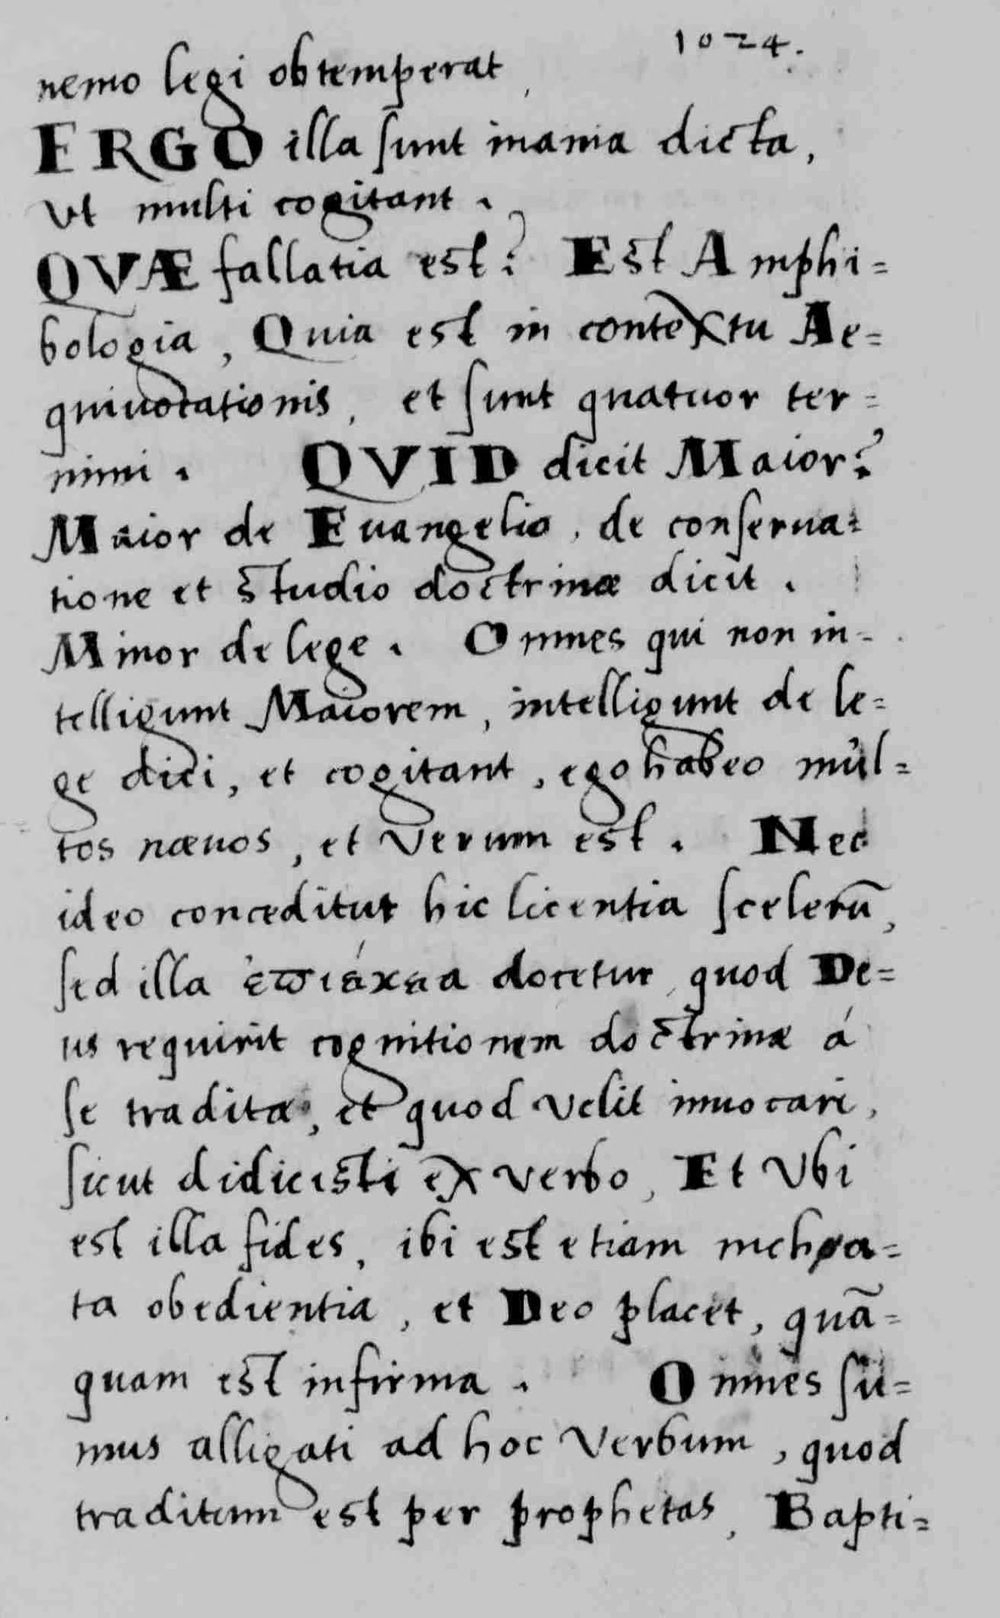 1024.
nemo legi obtemperat
ERGO illa sunt inania dicta,
Vt multi cogitant.
QVÆ fallatia est? Est Amphi=
bologia, Quia est in contextu Ae=
quiuocationis, et sunt quatuor ter=
mini. QVID dicit Maior?
Maior de Euangelio, de conserua=
tione et studio doctrinæ dicit.
Minor de lege. Omnes qui non in=
telligunt Maiorem, intelligunt de le=
ge dici, et cogitant, ego habeo mul=
tos næuos, et verum est. Nec
ideo conceditur hic licentia scelerū,
sed illa ἐπιείκεια docetur, quod De=
us requirit cognitionem doctrinæ á
se traditæ, et quod velit inuocari,
sicut didicisti ex verbo, Et Vbi
est illa fides, ibi est etiam inchoa=
ta obedientia, et Deo placet, quā=
quam est infirma. Omnes su=
mus alligati ad hoc Verbum, quod
traditum est per prophetas, Bapti=